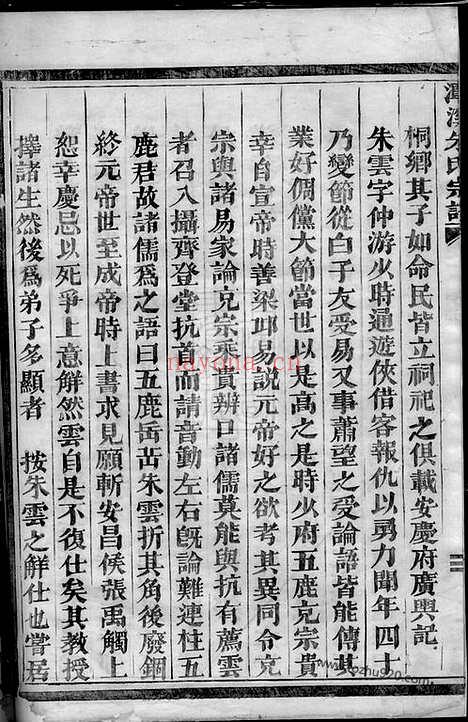 潭溪朱氏宗譜
桐鄉其子如命民皆立祠祀之俱載安慶府廣輿記
朱雲字仲游少時通遊俠借客報仇以勇力聞年四十
乃變節從白子友受易又事蕭望之受論語皆能傳其
業好倜儻大節當世以是高之是時少府五鹿克宗貴
幸自宣帝時善梁邱易說元帝好之欲考其異同令克
宗與諸易家論克宗乘貴辨口諸儒莫能與抗有薦雲
者召入攝齊登堂抗首而請音動左右旣論難連柱五
鹿君故諸儒爲之語曰五鹿岳岳朱雲折其角後廢錮
終元帝世至成帝時上書求見願斬安昌侯張禹觸上
恕幸慶忌以死爭上意解然雲自是不復仕矣其教授
擇諸生然後爲弟子多顯者　按朱雲之鮮仕也嘗居
nayona.cn
pozhu920.com